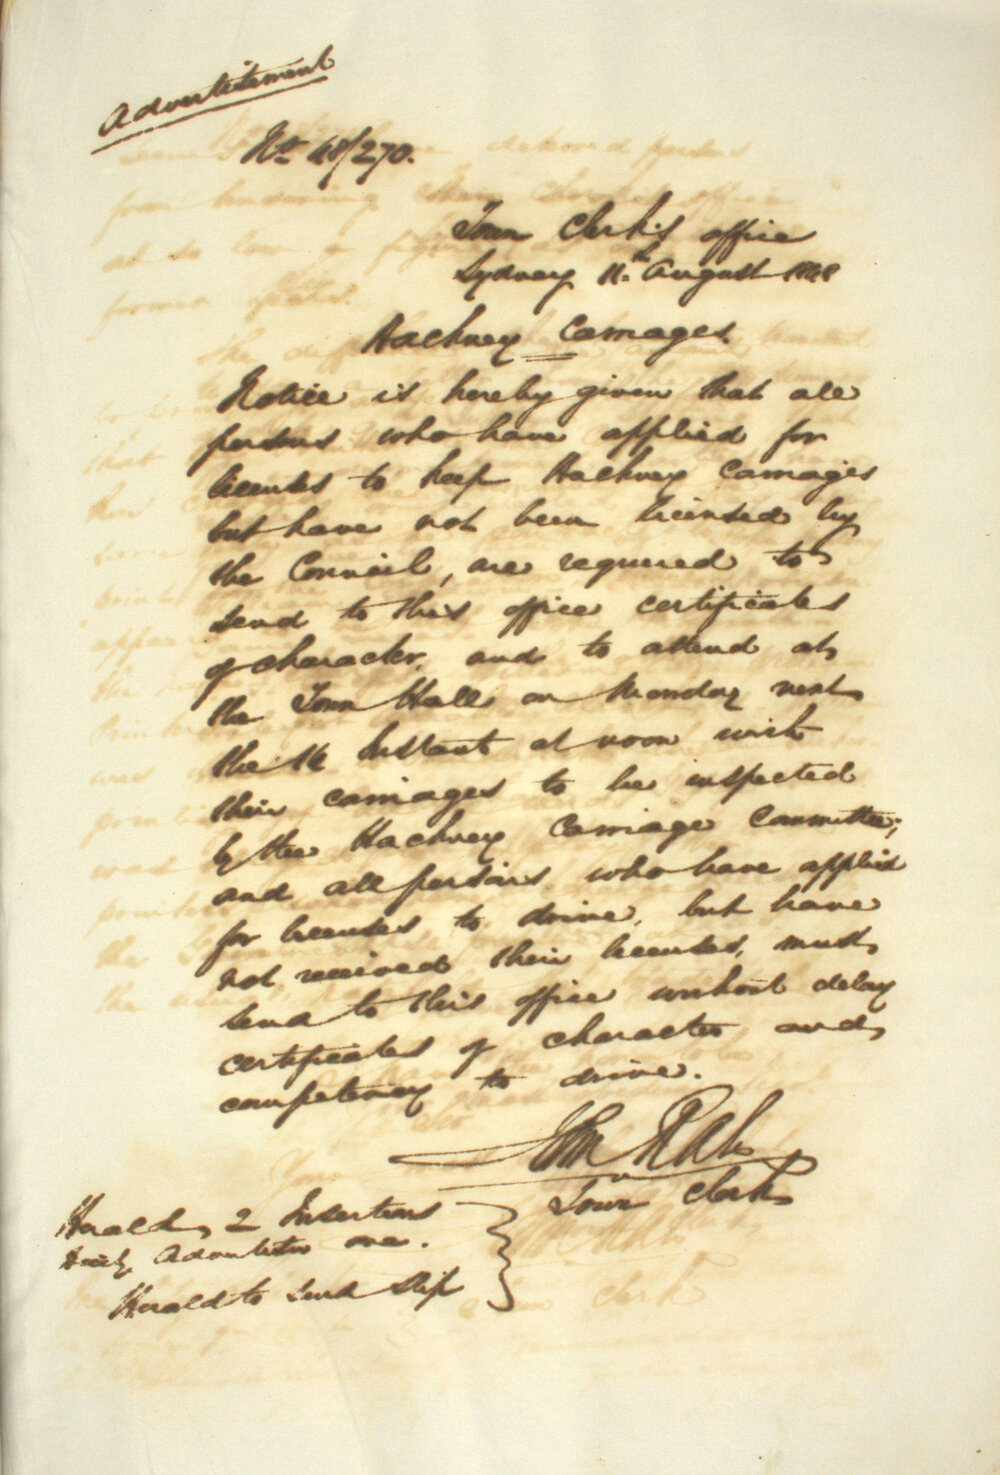 Advertisement
No 48/270.
Town Clerk's office
Sydney 11th August 1848
Hackney Carriages.
Notice is hereby given that all
persons who have applied for
licenses to keep Hackney Carriages
but have not been licensed by
the Council, are required to
send to this office certificates
of character, and to attend at
the Town Hall on Monday next
the 14 Instant at noon with
their carriages to be inspected
by the Hackney Carriage Committee;
and all persons who have applied
for licenses to drive, but have
not received their licenses, must
send to this office without delay
certificates of character and
competency to drive.
John Rae
Town Clerk
Herald, 2 Insertions
Daily Advertiser one.
Herald to send slip